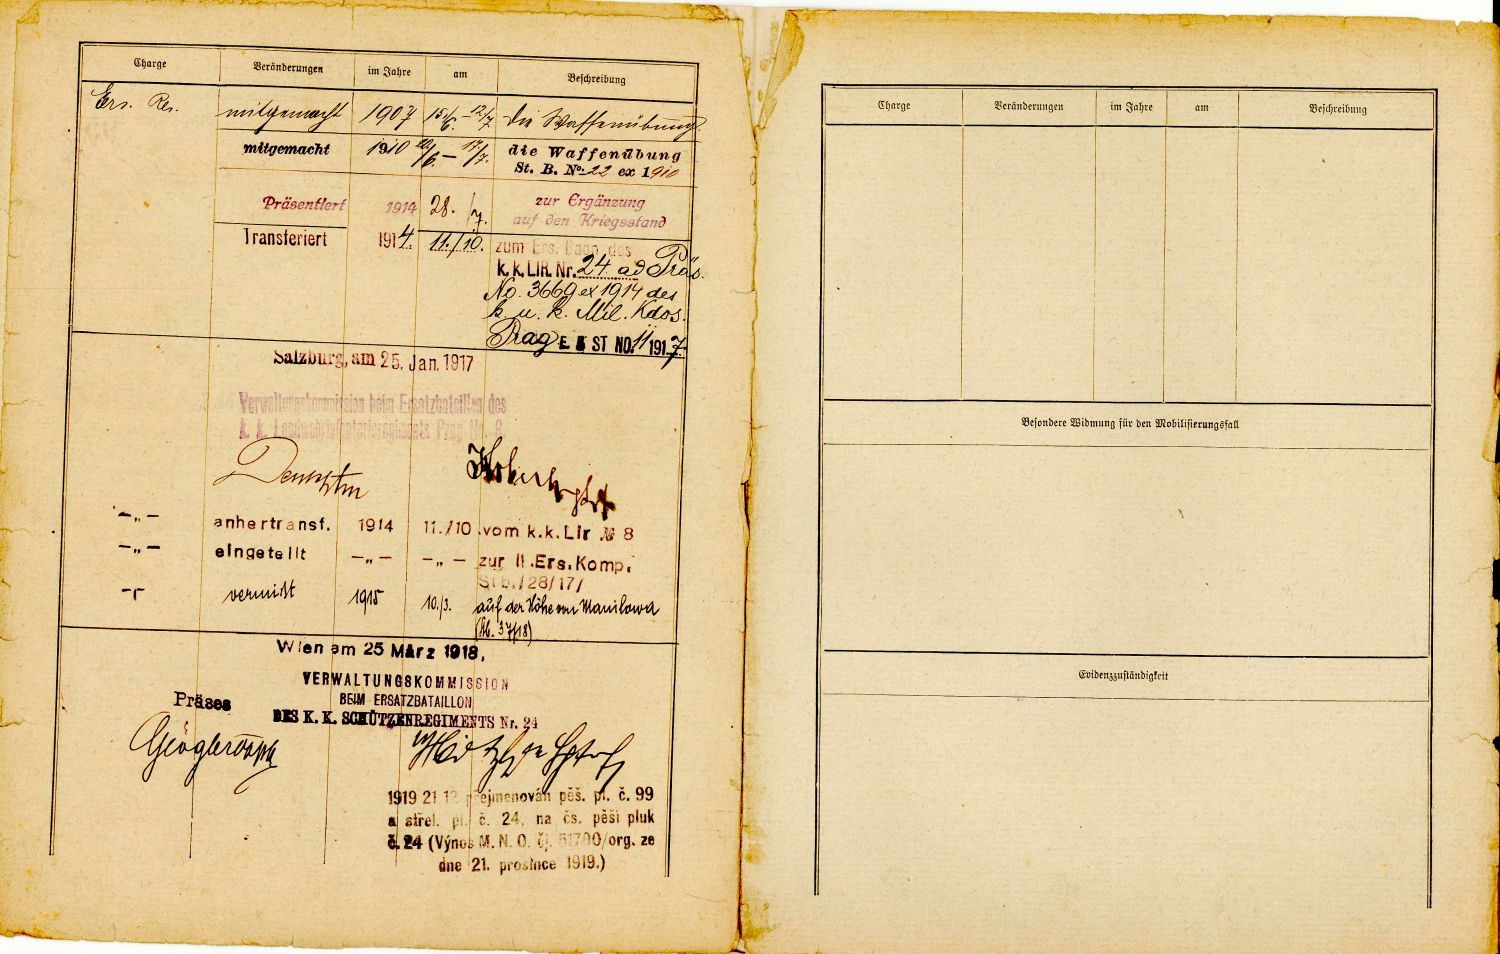 Charge Veränderungen im Jahre am Beschreibung
Ers. Res. mitgemacht 1907 15/6. - 12/7. die Waffenübung
mitgemacht 1910 20/6 - 17/7. die Waffenübung
St. B. No. 22 ex 1910
Präsentiert 1914 28./7. zur Ergänzung
auf den Kriegsstand
Transferiert 1914. 11./10. zum Ers. Baon des
k. k. LIR. Nr. 24 ad Präs.
No. 3669 ex 1914 des
k. u. k. Mil. Kdos.
Prag E. ST NO. 11 1917
Salzburg, am 25. Jan. 1917
Verwaltungskommission beim Ersatzbataillon des
k. k. Landwehrinfanterieregiments Prag Nr. 8
-„- anhertransf. 1914 11./10 vom k.k. Lir № 8
-„- eingeteilt -„- -„- zur II. Ers. Komp.
Stb./28/17/
-„- vermißt 1915 10./3. auf der Höhe von Manilowa
(Stb. 37/18)
Wien am 25 März 1918,
VERWALTUNGSKOMMISSION
BEIM ERSATZBATAILLON
Präses DES K. K. SCHÜTZENREGIMENTS Nr. 24
1919 21 12 přejmenován pěš. pl. č. 99
a střel. pl. č. 24, na čs. pěší pluk
č. 24 (Výnos M. N. O. čj. 51700/org. ze
dne 21. prosince 1919.)
Charge Veränderungen im Jahre am Beschreibung
Besondere Widmung für den Mobilisierungsfall
Evidenzzuständigkeit